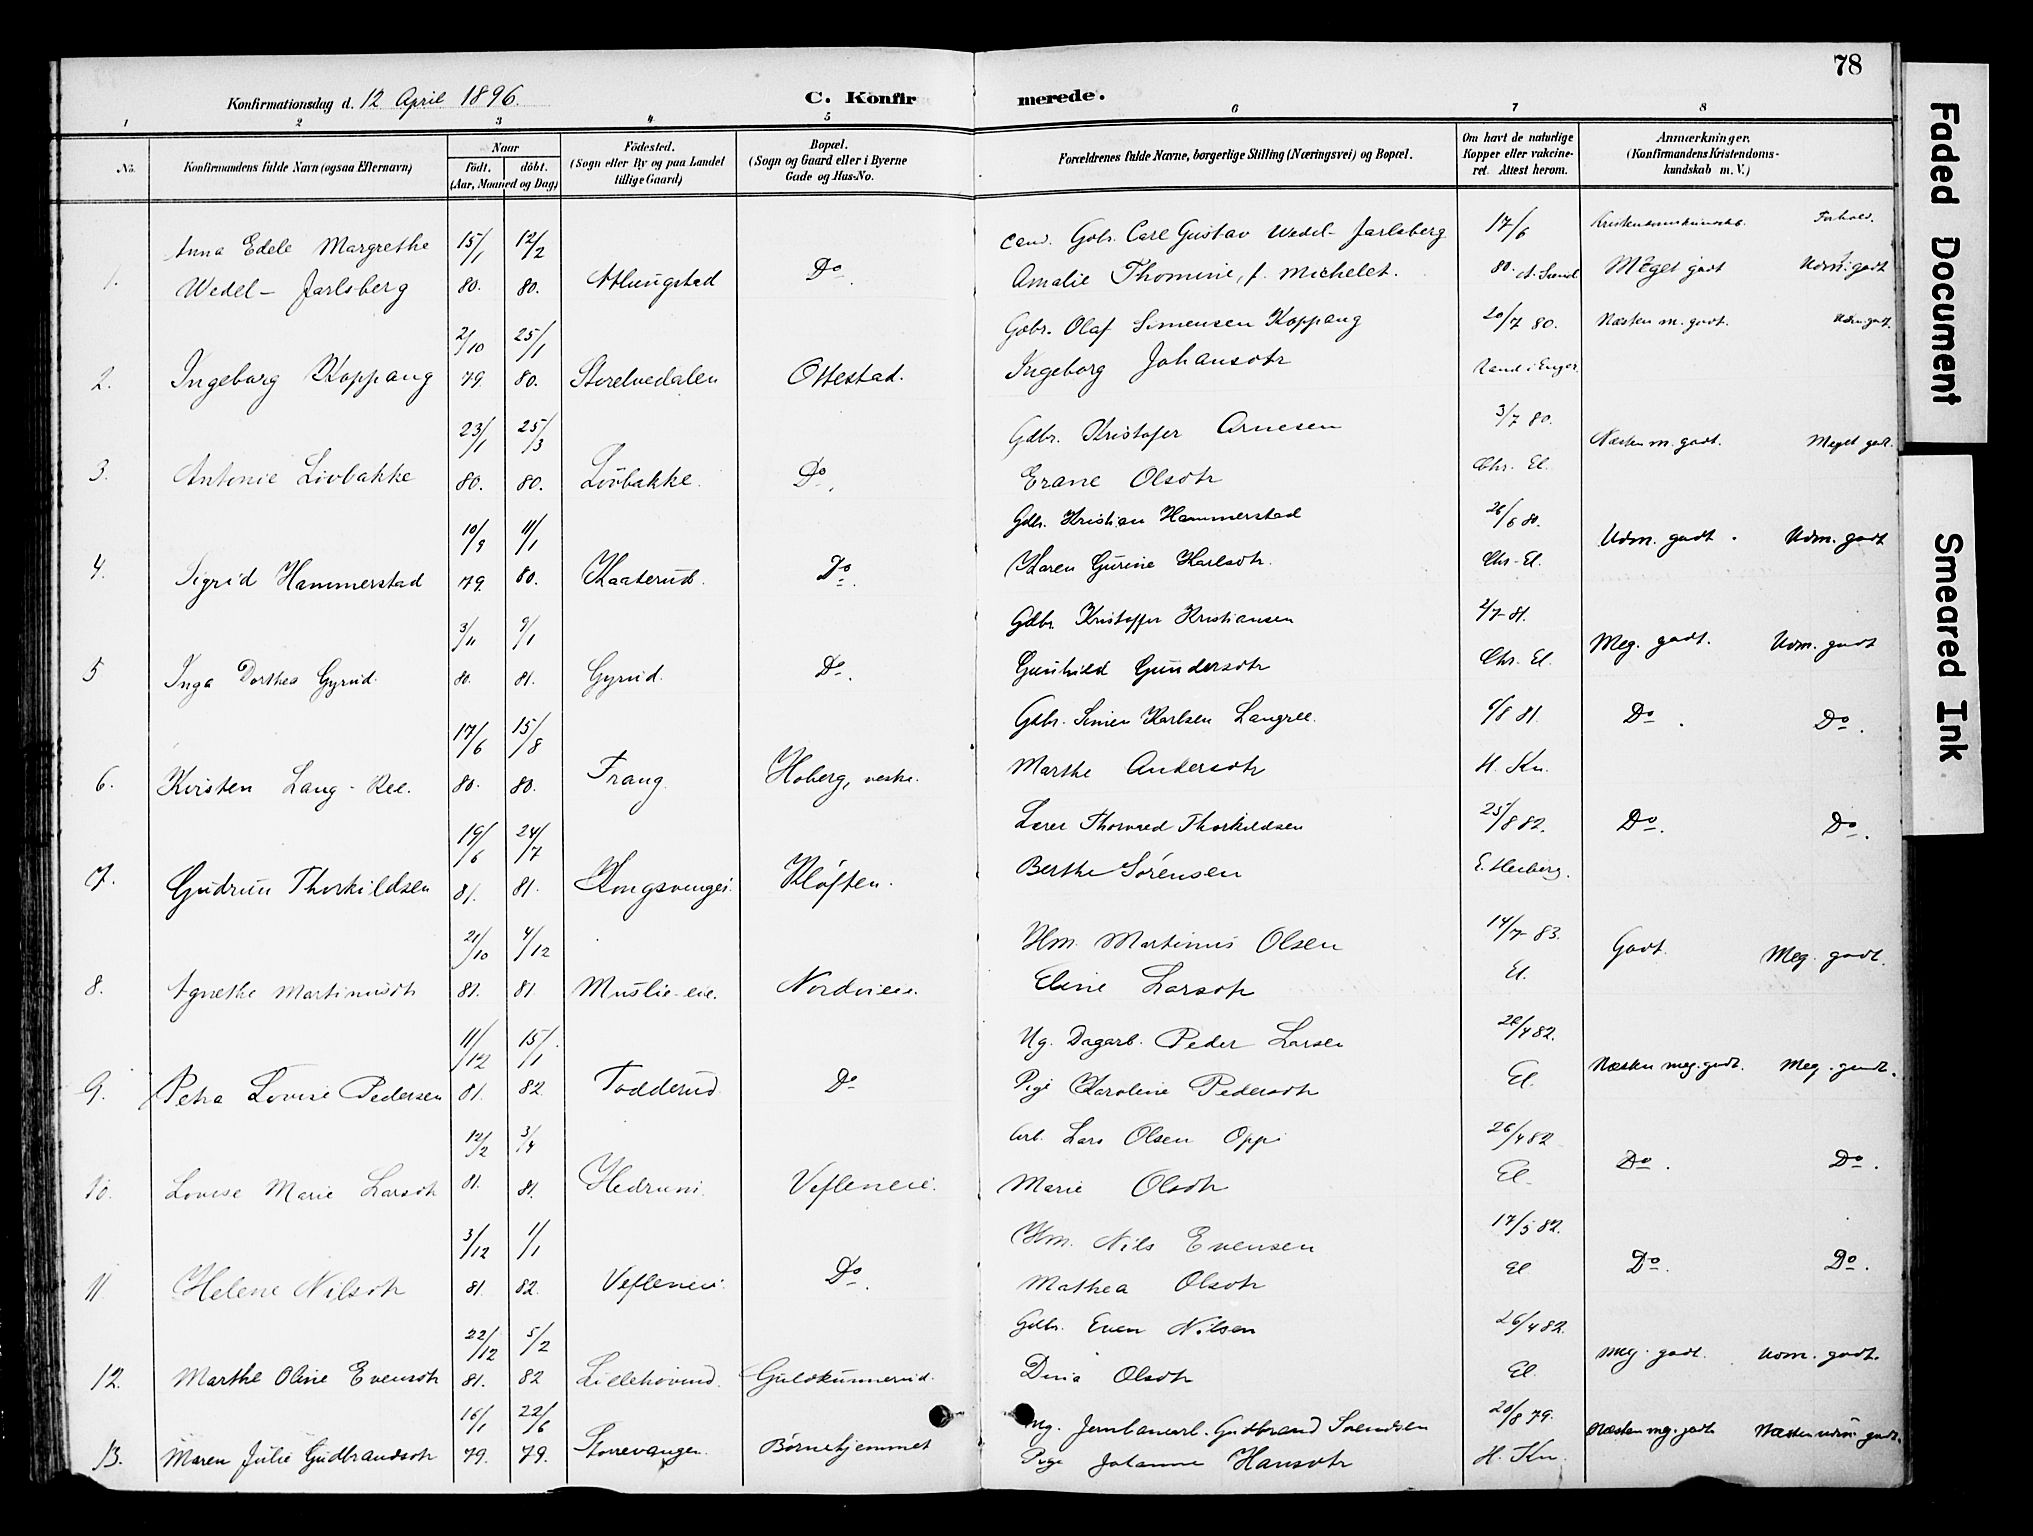 78
Konfirmationsdag d. 12 April 1896.
C. Konfirmerede.
1 2 3 4 5 6 7 8
No.
Konfirmandens fulde Navn (ogsaa Efternavn)
Naar
født. døbt.
(Aar, Maaned og Dag)
Fødested.
(Sogn eller By og paa Landet
tillige Gaard)
Bopæl.
(Sogn og Gaard eller i Byerne
Gade og Hus-No.
Forældrenes fulde Navne, borgerlige Stilling (Næringsvei) og Bopæl.
Om havt de naturlige
Kopper eller vakcine-
ret. Attest herom.
Anmærkninger.
(Konfirmandens Kristendoms-
kundskab m. V.)
Anna Edele Margrethe 15/1 12/2 Gbr. Carl Gustav Wedel-Jarlsberg 17/6 Kristendomskundskb. Forhold.
1. Wedel-Jarlsberg 80. 80. Atlungstad Do. Amalie Thomine, f. Michelet. 80. Meget godt Udm. godt
2/10 25/1 Gdbr. Olaf Simensen Koppang 20/7 80. Næsten m. godt. Udm. godt.
2. Ingeborg Koppang 79. 80. Storelvedalen Ottestad. Ingeborg Johansdtr
23/1 25/3 Gdbr. Kristofer Arnesen 3/7 80. Næsten m. godt. Meget godt.
3. Antonie Lövbakke 80. 80. Lövbakke. Do. Erane Olsdtr Chr. El.
10/9 11/1 Gdbr. Kristian Hammerstad 26/6 80. Udm. godt. Udm. godt
4. Sigrid Hammerstad 79. 80. Kaaterud. Do. Karen Gurine Karlsdtr. Chr. El.
3/11 9/1 Gdbr. Kristoffer Kristiansen 2/7 81. Meg. godt. Udm. godt
5 Inga Dorthea Gyrud. 80. 81. Gyrud. Do. Gunhild Gundersdtr Chr. El.
17/6 15/8 Gdbr. Simen Karlsen Langree. 9/8 81. Do. Do.
6. Kirsten Lang-Ree. 80. 80. Trang Hoberg, vestre. Marthe Andersdtr H. Kn.
19/6 24/7 Lærer Thorvald Thorkildsen 25/8 82. Do. Do.
7. Gudrun Thorkildsen 81. 81. Kongsvinger Kløften. Berthe Sørensen E. Heiberg.
21/10 4/12 Hm. Martinus Olsen 14/7 83. Godt. Meg. godt.
8. Agnethe Martinusdtr 81. 81 Muslie-eie. Nordvieie. Eline Larsdtr El.
11/12 15/1 Ug. Dagarb. Peder Larsen 26/4 82. Næsten meg. godt. Meg. godt.
9. Petra Lovise Pedersen 81. 82. Todderud Do Pige Karoline Pedersdtr El.
12/2 3/4 Arb. Lars Olsen Oppi 26/4 82 Do. Do.
10. Lovise Marie Larsdtr 81. 81. Hedruni. Vefleneie. Marie Olsdtr El.
3/12 1/1 Hm. Nils Evensen 17/5 82. Do. Do.
11. Helene Nilsdtr 81. 82. Vefleneie. Do. Mathea Olsdtr El
22/12 5/2 Gdbr. Even Nilsen 26/4 82. Meg. godt. Udm. godt.
12. Marthe Oline Evensdtr 81. 82 Lillehovind. Guldkunnerud. Dina Olsdtr El.
16/1 22/6 Ug. Jernbanearb. Gudbrand Svendsen 20/8 79. Næsten meg. godt Næsten udm. godt.
13. Maren Julie Gudbrandsdtr 79. 79. Storrevangen. Børnehjemmet Pige Johanne Hansdtr H. Kn.
Faded Document
Smeared Ink